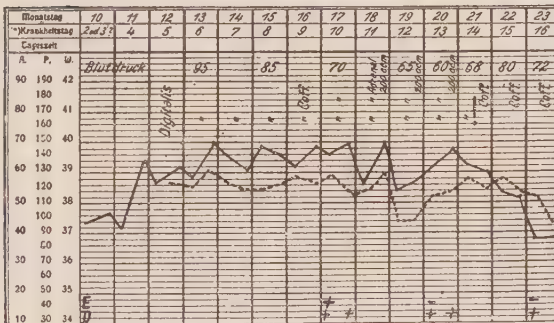 Monatstag 10 11 12 13 14 15 16 17 18 19 20 21 22 23
Krankheitstag 4 5 6 7 8 9 10 11 12 13 14 15 16
Tageszeit
R. P. W. Blutdruck 95 85 70 65 60 68 80 72
90 190 42
180 Digitalis Coff. 200 ccm 200 ccm 200 ccm Coff. Coff. Coff.
80 170 41
160 " " " " " "
70 150 40
140
60 130 39
120
50 110 38
100
40 90 37
80
30 70 36
60
20 50 35
40 E + - -
10 30 34 + + + + +